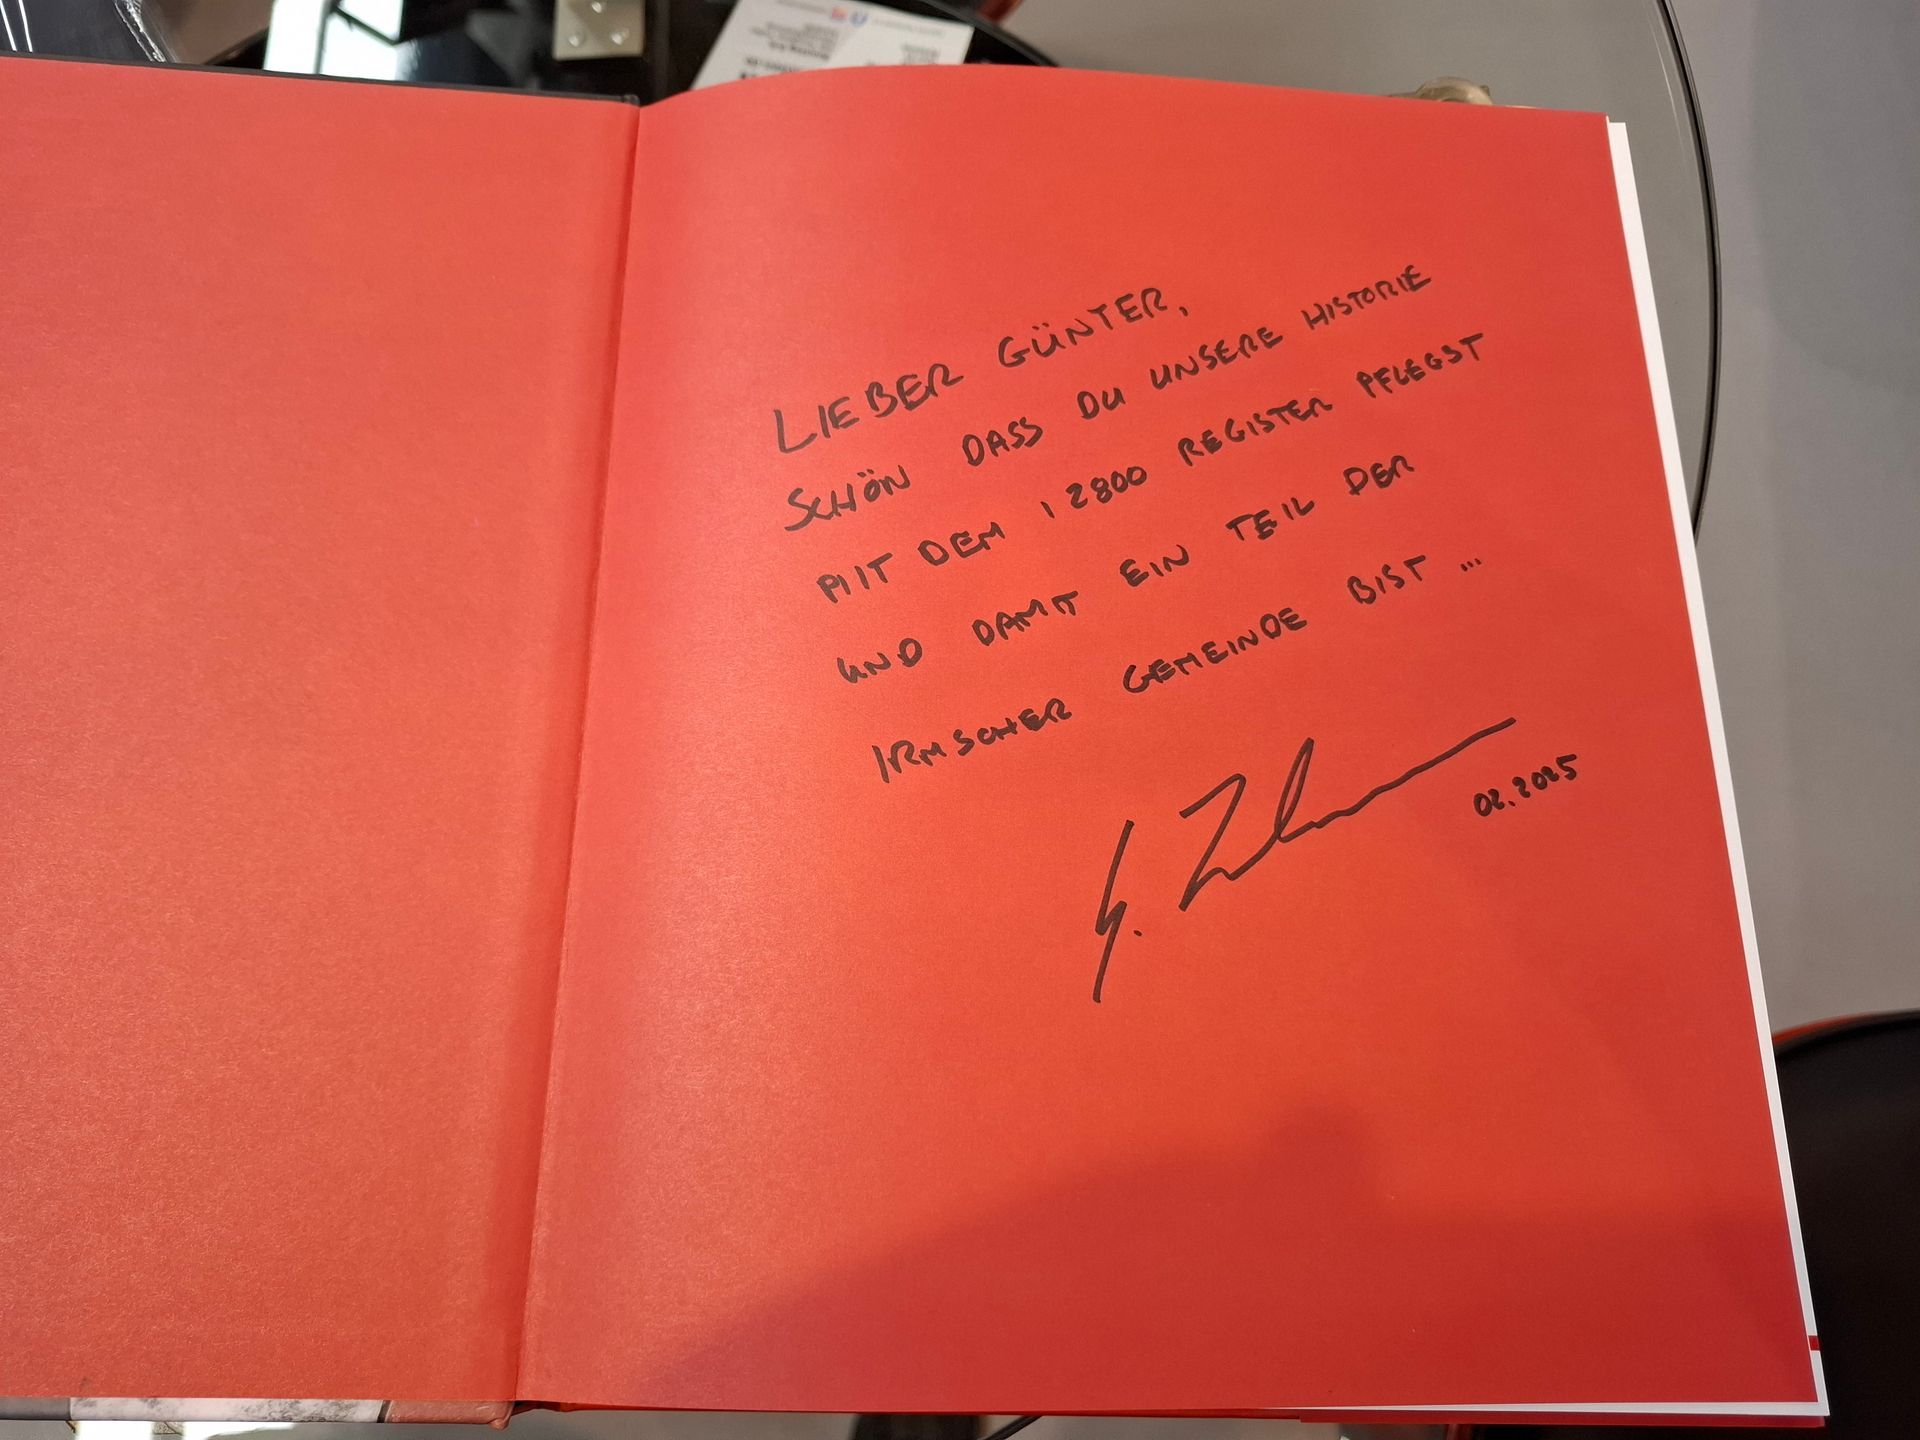 LIEBER GÜNTER,
SCHÖN DASS DU UNSERE HISTORIE
MIT DEM i2800 REGISTER PFLEGST
UND DAMIT EIN TEIL DER
IRMSCHER GEMEINDE BIST ...
02.2025